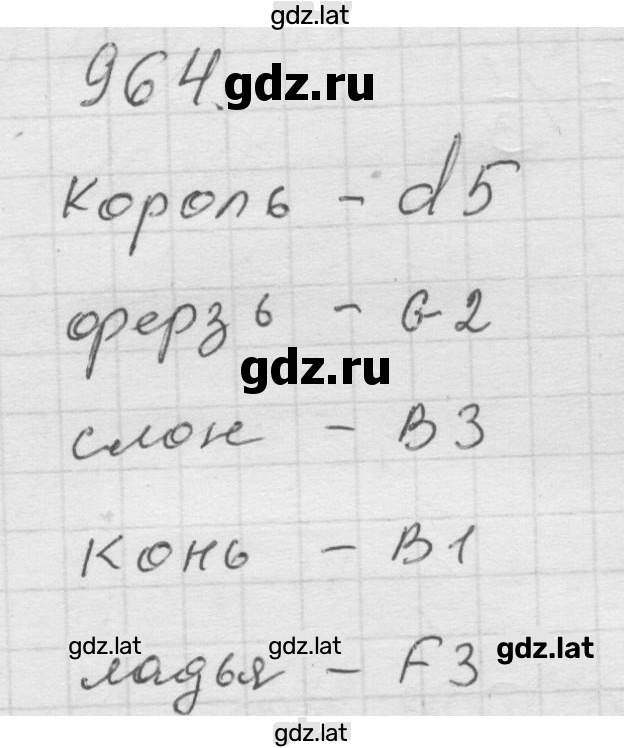 gdz.lat
964.
gdz.ru
король - d5
ферзь - G2
gdz.ru
слон - B3
конь - B1
gdz.lat gdz.lat gdz.lat
ладья - F3
gdz.lat